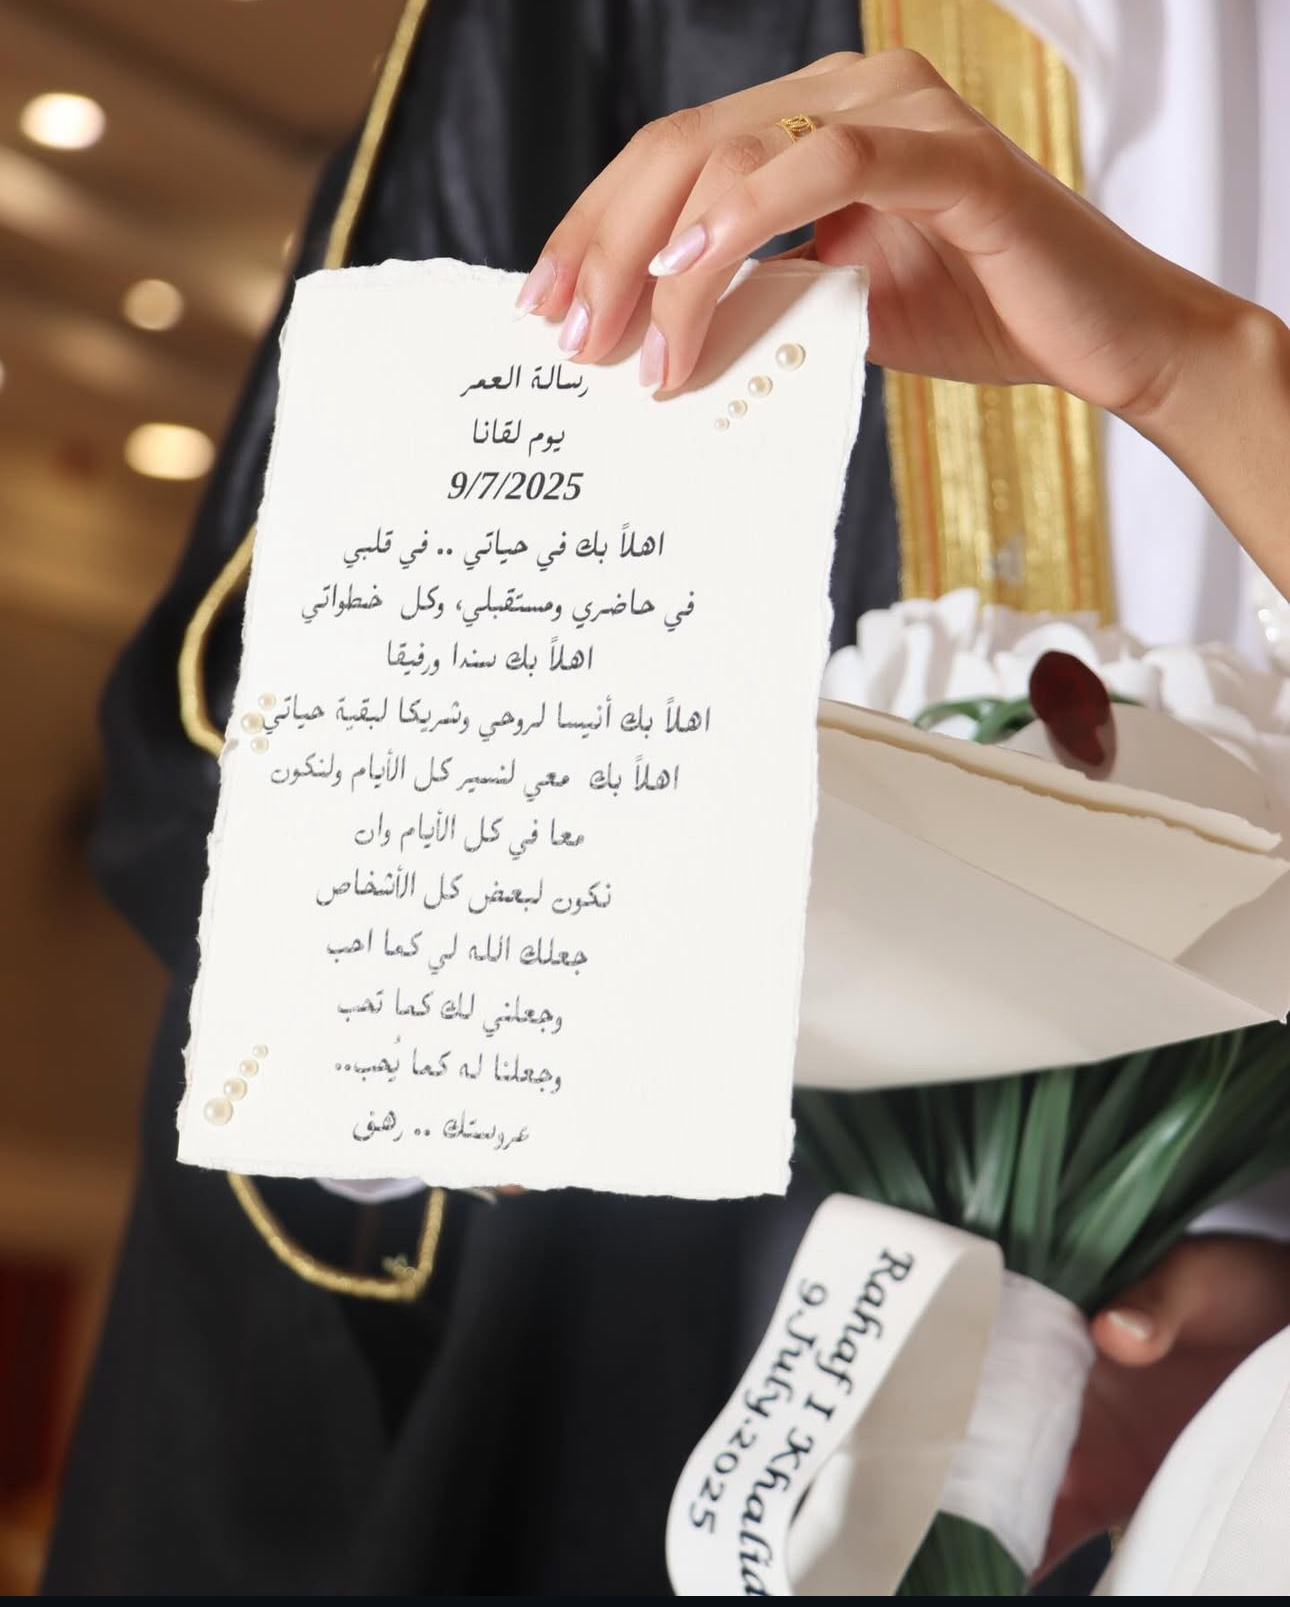 رسالة العمر
يوم لقانا
9/7/2025
اهلاً بك في حياتي .. في قلبي
في حاضري ومستقبلي، وكل خطواتي
اهلاً بك سندا ورفيقا
اهلاً بك أنيسا لروحي وشريكا لبقية حياتي
اهلاً بك معي لنسير كل الأيام ولنكون
معا في كل الأيام وان
نكون لبعض كل الأشخاص
جعلك الله لي كما احب
وجعلني لك كما تحب
وجعلنا له كما يُحب..
عروستك .. رهف
Rahaf I Khalid
9.July.2025